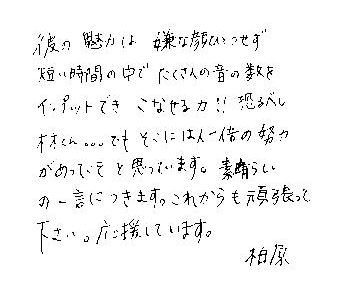 彼の魅力は 嫌な顔ひとつせず
短い時間の中で たくさんの音の数を
インプットでき こなせる力!! 恐るべし
木木くん。。。でも そこには人一倍の努力
があってこそ と思っています。素晴らしい
の一言につきます。これからも頑張って
下さい。応援しています。
柏原